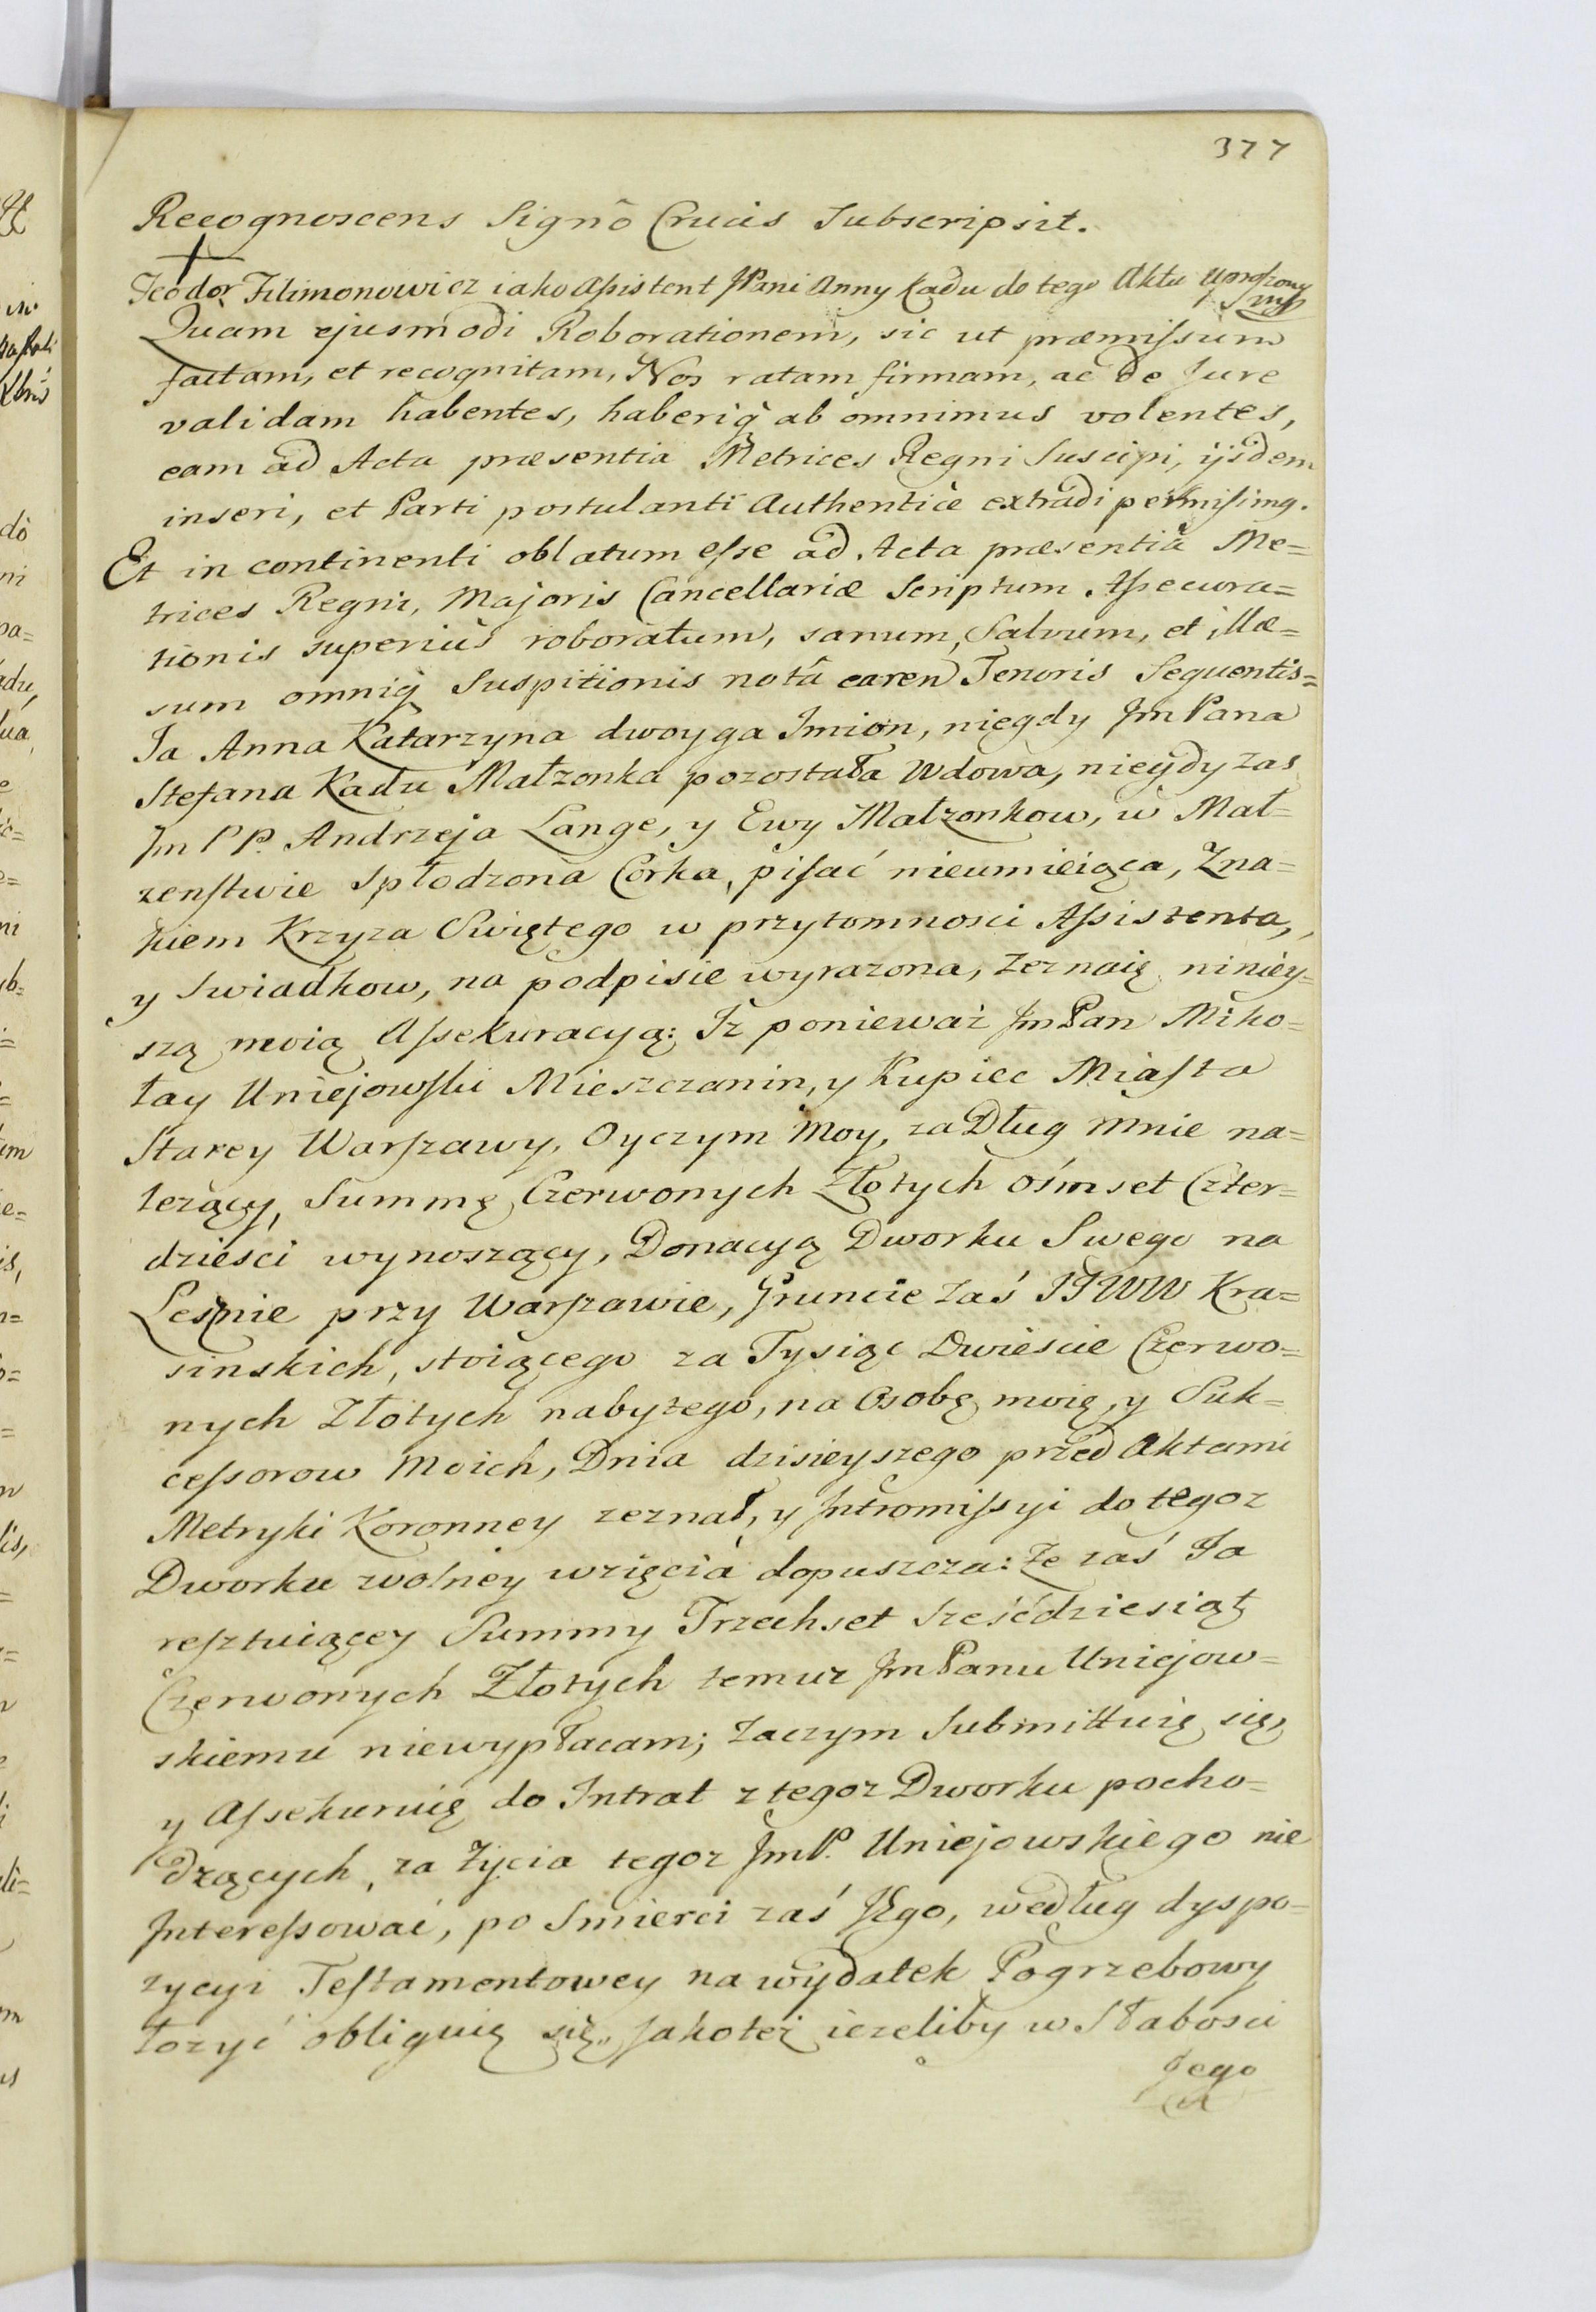 377
Recognoscens Signõ Crucis Subscripsit.
+
Teodor Filimonowicz iako Asistent JPani Anny Kadu do tego Aktu Uproszony
mp
Quam ejusmodi Roborationem, sic ut præmissum
factam, et recognitam, Nos ratam firmam, ac de Jure
validam habentes, haberiq ab omnimus volentes,
eam ad Acta præsentia Metrices Regni Suscipi, ijsdem
inseri, et Parti postulanti Authenticè extradi permisimg.
Et in continenti oblatum esse ad Acta præsentia Me=
trices Regni, Majoris Cancellariæ Scriptum Assecura=
tionis superius roboratum, sanum, Salvum, et illæ=
sum omniq Suspitionis notâ caren Tenoris Sequentis=
Ja Anna Katarzyna dwoyga Jmion, niegdy Jm Pana
Stefana Kadu Małzonka pozostała Wdowa, niegdy zas
Jm PP. Andrzeja Lange, y Ewy Małzonkow, w Mał=
zenstwie Spłodzona Corka, pisać nieumieiąca, Zna=
kiem Krzyza Swiętego w przytomnosci Assistenta,
y Swiadkow, na podpisie wyrazona, zeznaię niniey=
szą moią Assekuracyą: Iz ponieważ Jm Pan Miko=
łay Uniejowski Mieszczanin, y Kupiec Miasta
Starey Warszawy, Oyczym Moy, za Dług mnie na=
lezący, Summę Czerwonych Złotych ośmset Czter=
dziesci wynoszący, Donacyą Dworku Swego na
Lesznie przy Warszawie, Gruncie zaś JJWW Kra=
sinskich, stoiącego za Tysiąc Dwieście Czerwo=
nych Złotych nabytego, na Osobę moię, y Suk=
cessorow Moich, Dnia dzisieyszego przed Aktami
Metryki Koronney zeznał, y Jntromissyi do tegoz
Dworku wolney wzięcia dopuszcza: Ze zaś Ja
resztuiącey Summy Trzechset Sześćdziesiąt
Czerwonych Złotych temuz Jm Panu Uniejow=
skiemu niewypłacam; Zaczym Submittuię się,
y Assekuruię do Intrat z tegoz Dworku pocho=
dzących, za życia tegoz JmP. Uniejowskiego nie
Jnteressować, po Smierci zaś JEgo, według dyspo=
zycyi Testamentowey na wydatek Pogrzebowy
łozyć obliguię się, Jakoteż iezeliby w Słabosci
Jego